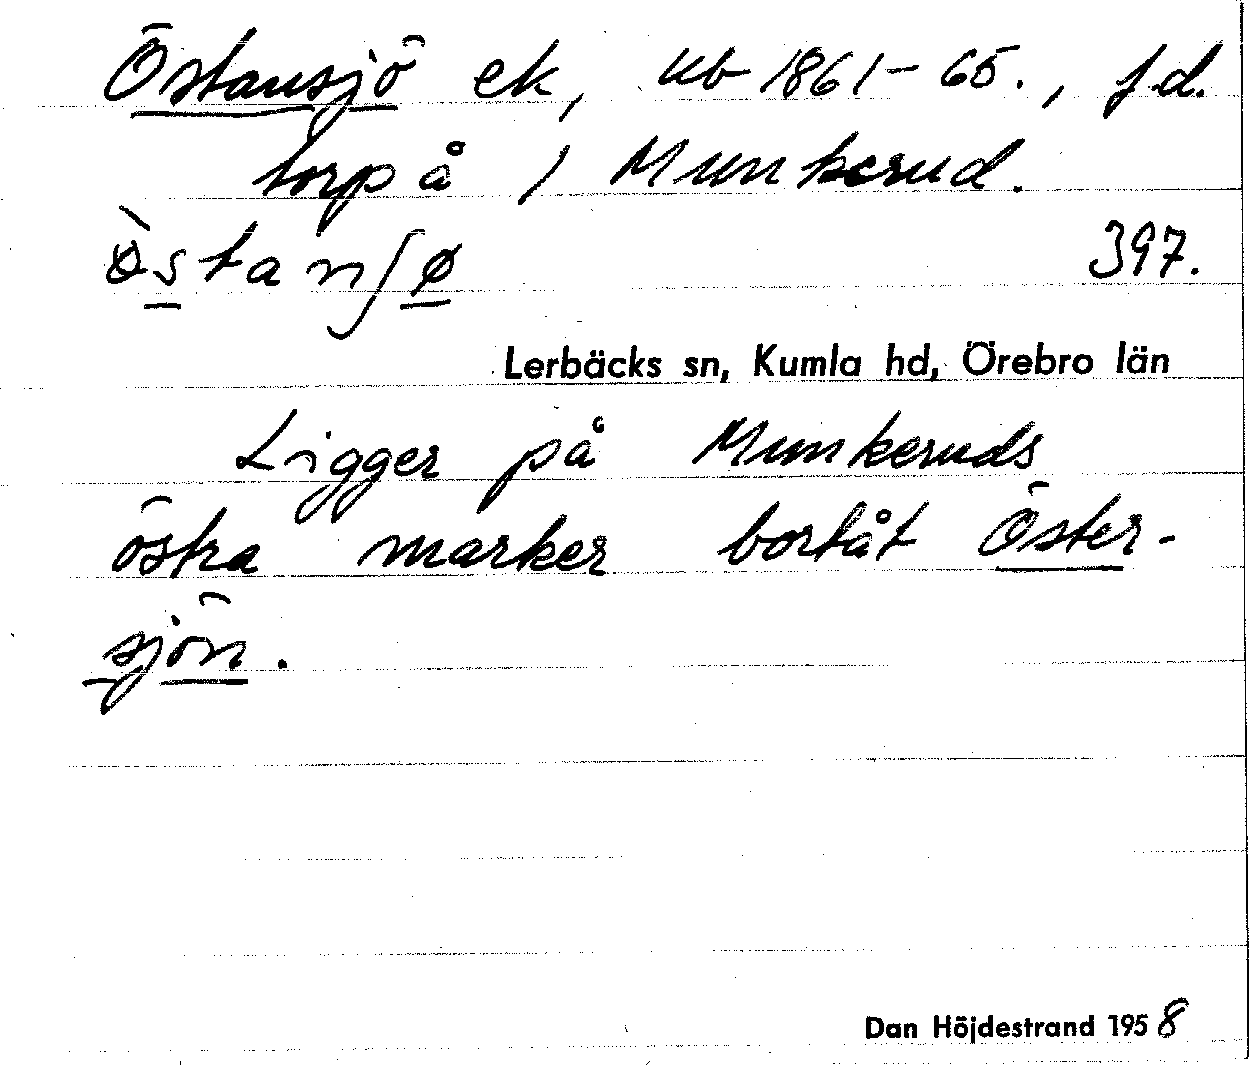 Östansjö ek, kb 1861–65., f.d.
torp å 1 Munkerud.
östanʃø
397.
Lerbäcks sn, Kumla hd, Örebro län
Ligger på Munkeruds
östra marker bortåt Öster-
sjön.
Dan Höjdestrand 1958